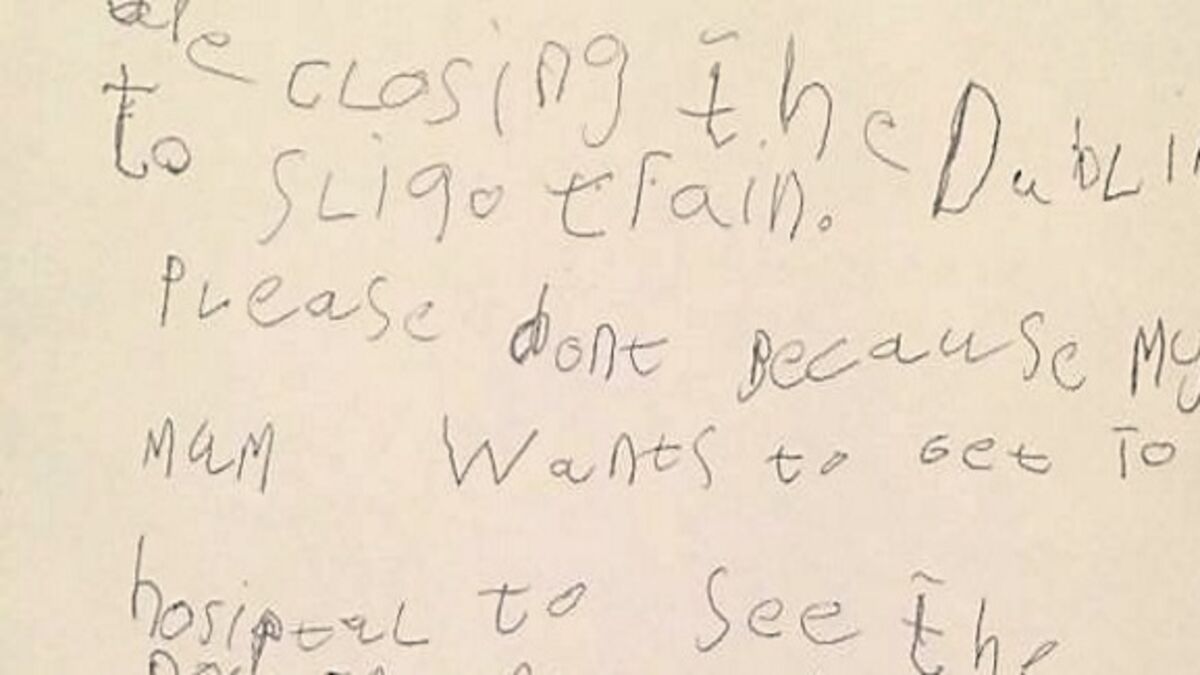 are closing the Dublin
to Sligo train.
Please dont Because My
Mam Wants to Get To
hosiptal to See the